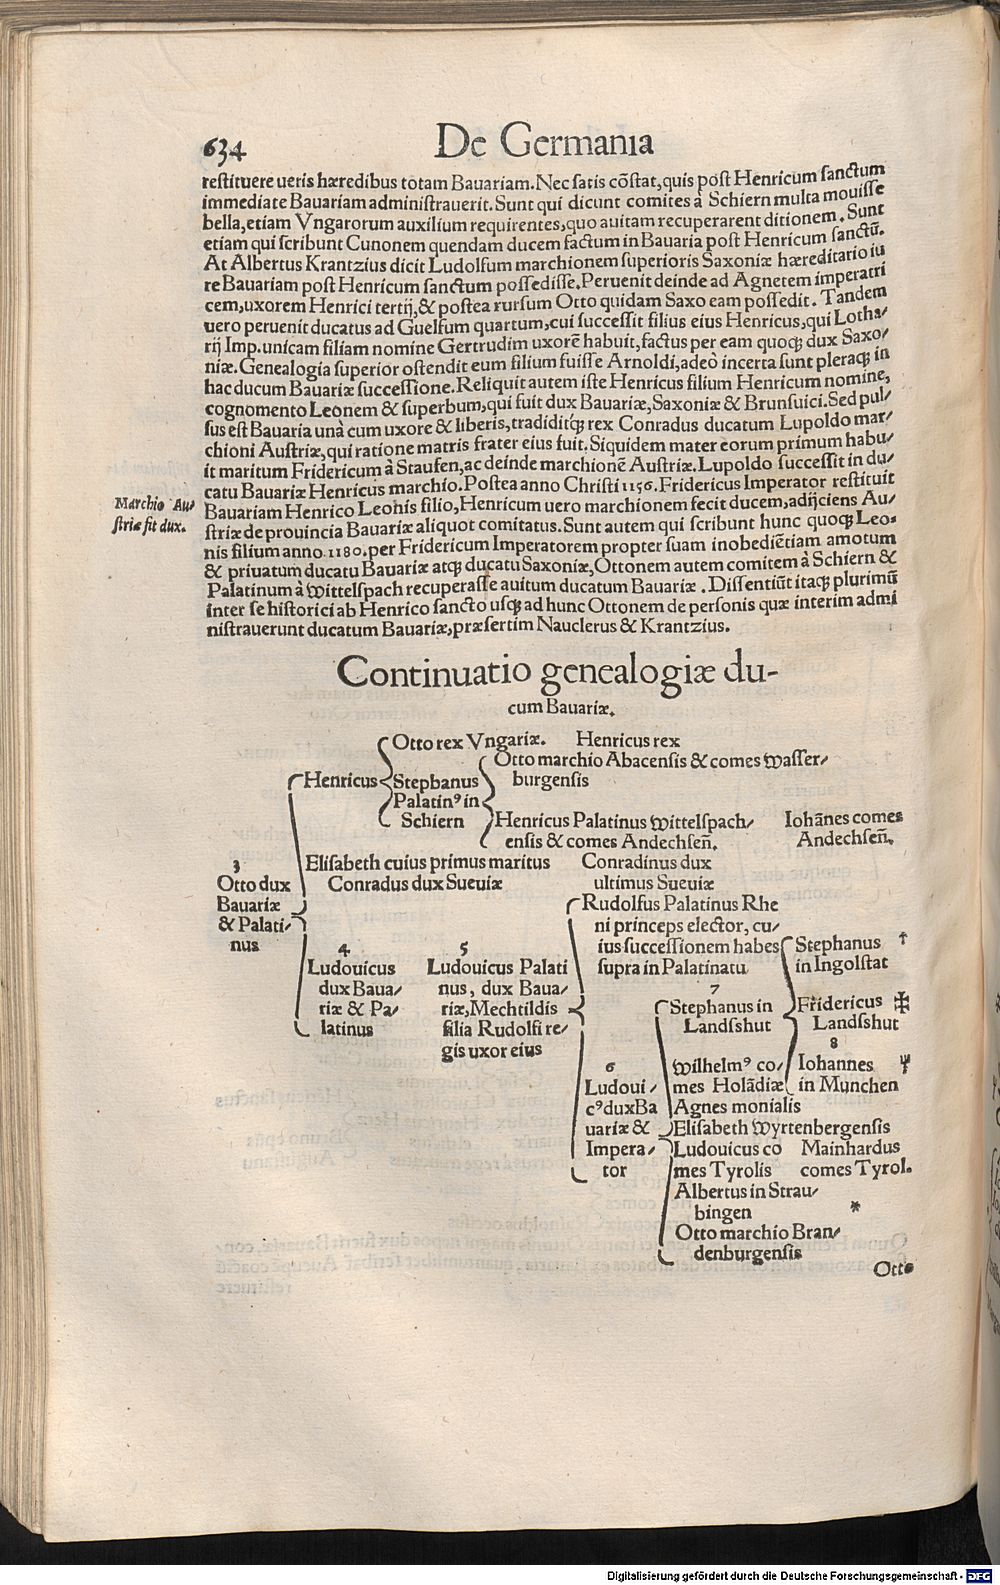 634 De Germania
restituere ueris hæredibus totam Bauariam. Nec satis cõstat, quis post Henricum sanctum
immediate Bauariam administrauerit. Sunt qui dicunt comites à Schiern multa mouisse
bella, etiam Vngarorum auxilium requirentes, quo auitam recuperarent ditionem. Sunt
etiam qui scribunt Cunonem quendam ducem factum in Bauaria post Henricum sanctũ.
At Albertus Krantzius dicit Ludolfum marchionem superioris Saxoniæ hæreditario iu
re Bauariam post Henricum sanctum possedisse. Peruenit deinde ad Agnetem imperatri
cem, uxorem Henrici tertij, & postea rursum Otto quidam Saxo eam possedit. Tandem
uero peruenit ducatus ad Guelfum quartum, cui successit filius eius Henricus, qui Lotha/
rij Imp. unicam filiam nomine Gertrudim uxorẽ habuit, factus per eam quoqȝ dux Saxo/
niæ. Genealogia superior ostendit eum filium fuisse Arnoldi, adeò incerta sunt pleraqȝ in
hac ducum Bauariæ successione. Reliquit autem iste Henricus filium Henricum nomine,
cognomento Leonem & superbum, qui fuit dux Bauariæ, Saxoniæ & Brunsuici. Sed pul/
sus est Bauaria unà cum uxore & liberis, tradiditqȝ rex Conradus ducatum Lupoldo mar/
chioni Austriæ, qui ratione matris frater eius fuit. Siquidem mater eorum primum habu/
it maritum Fridericum à Staufen, ac deinde marchionẽ Austriæ. Lupoldo successit in du/
catu Bauariæ Henricus marchio. Postea anno Christi 1156. Fridericus Imperator restituit
Bauariam Henrico Leonis filio, Henricum uero marchionem fecit ducem, adijciens Au/
Marchio Au/
striæ fit dux.
striæ de prouincia Bauariæ aliquot comitatus. Sunt autem qui scribunt hunc quoqȝ Leo-
nis filium anno 1180. per Fridericum Imperatorem propter suam inobediẽtiam amotum
& priuatum ducatu Bauariæ atqȝ ducatu Saxoniæ, Ottonem autem comitem à Schiern &
Palatinum à Wittelspach recuperasse auitum ducatum Bauariæ. Dissentiũt itaqȝ plurimũ
inter se historici ab Henrico sancto usqȝ ad hunc Ottonem de personis quæ interim admi
nistrauerunt ducatum Bauariæ, præsertim Nauclerus & Krantzius.
Continuatio genealogiæ du-
cum Bauariæ.
Otto rex Vngariæ. Henricus rex
Otto marchio Abacensis & comes Wasser/
burgensis
Henricus
Stephanus
Palatinꝰ in
Schiern
Henricus Palatinus Wittelspach/
ensis & comes Andechseñ.
Iohãnes comes
Andechseñ.
3
Otto dux
Bauariæ
& Palati/
nus
Elisabeth cuius primus maritus
Conradus dux Sueuiæ
Conradinus dux
ultimus Sueuiæ
4
Ludouicus
dux Baua/
riæ & Pa/
latinus
5
Ludouicus Palati
nus, dux Baua/
riæ, Mechtildis
filia Rudolfi re/
gis uxor eius
Rudolfus Palatinus Rhe
ni princeps elector, cu/
ius successionem habes
supra in Palatinatu
6
Ludoui/
cꝰ dux Ba
uariæ &
Impera/
tor
7
Stephanus in
Landsshut
Stephanus †
in Ingolstat
Fridericus ✠
Landsshut
8
Iohannes Ψ
in Munchen
Wilhelmꝰ co/
mes Holãdiæ
Agnes monialis
Elisabeth Wyrtenbergensis
Ludouicus co
mes Tyrolis
Mainhardus
comes Tyrol.
Albertus in Strau/
bingen *
Otto marchio Bran/
denburgensis
Otto
Digitalisierung gefördert durch die Deutsche Forschungsgemeinschaft - DFG